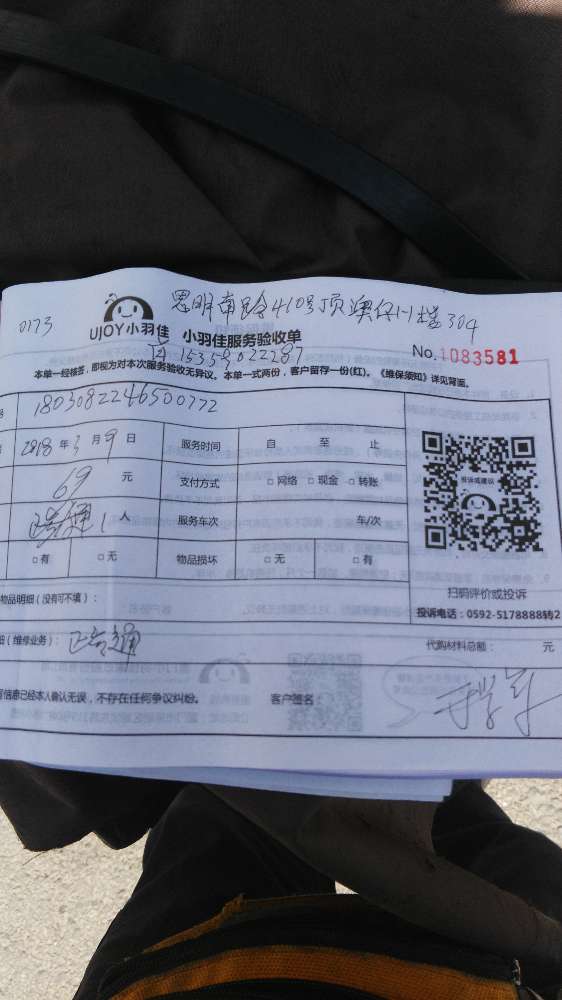 思明南路410号顶澳仔川楼304
0173
UJOY小羽佳 小羽佳服务验收单
15359022287
No.1083581
本单一经核签,即视为对本次服务验收无异议。本单一式两份,客户留存一份(红)。《维保须知》详见背面。
号 1803082246500772
2018年3月9日 服务时间 自 至 止
69元 支付方式 □网络 □现金 □转账
1人 服务车次 车/次
□有 □无 物品损坏 □无 □有
投诉或建议
扫码评价或投诉
物品明细(没有可不填):
投诉电话:0592-5178888转2
(维修业务): 代购材料总额: 元
信息已经本人确认无误,不存在任何争议纠纷。 客户签名: